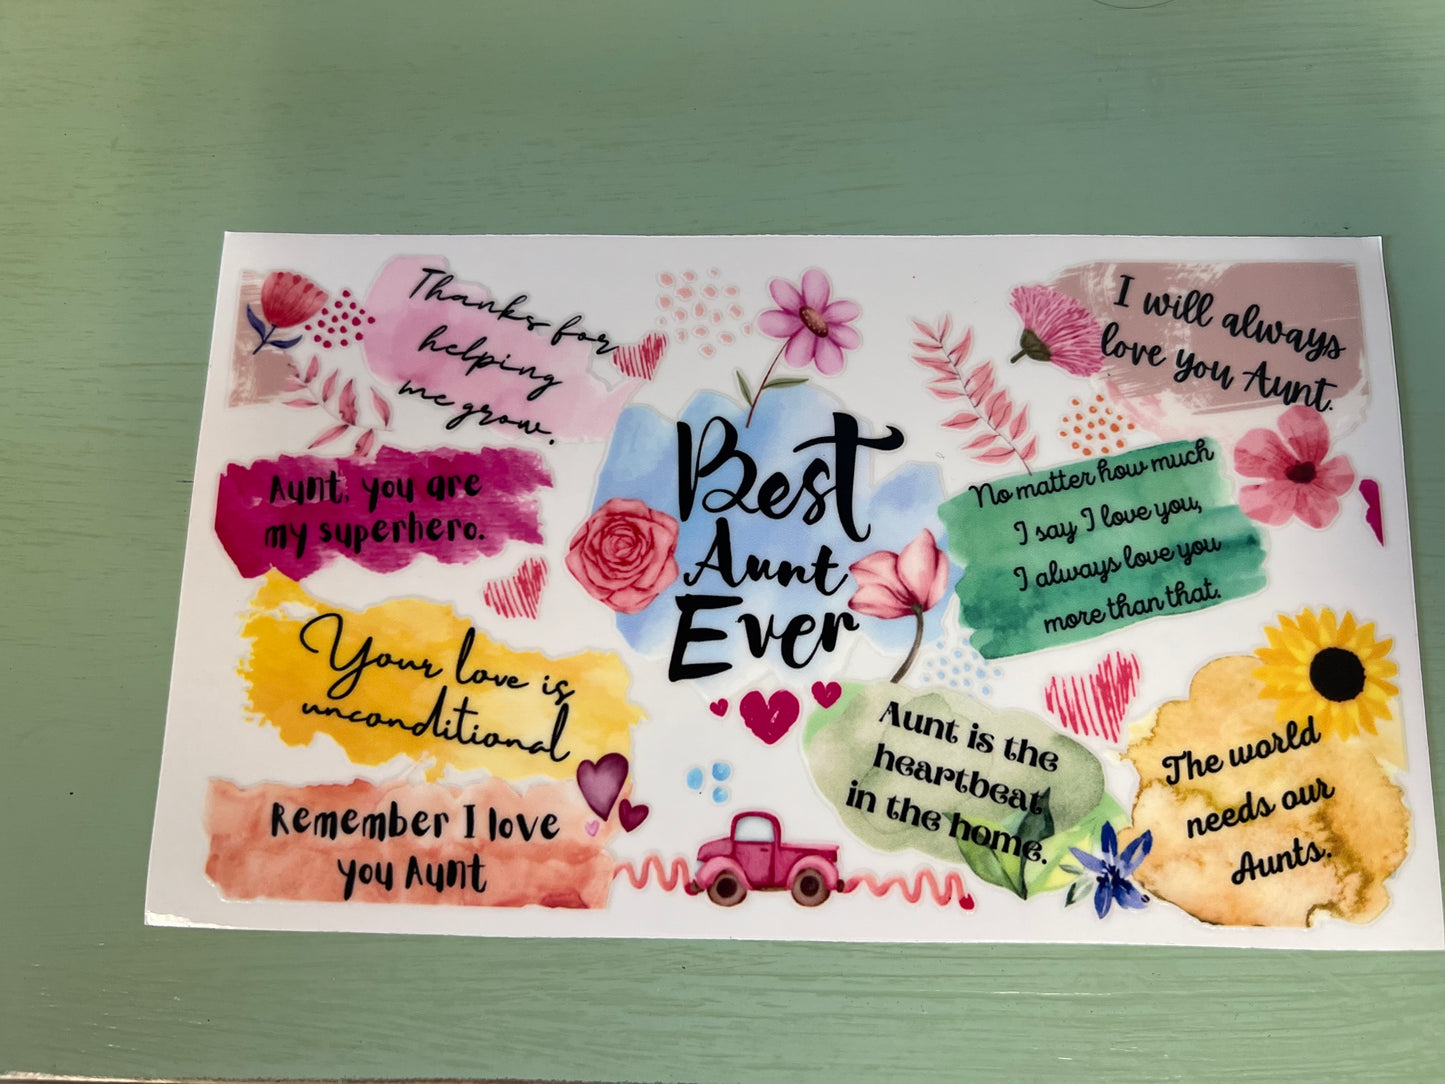 Thanks for
helping
me grow.
Aunt, you are
my superhero.
Your love is
unconditional
Remember I love
you Aunt
Best
Aunt
Ever
I will always
love you Aunt.
No matter how much
I say I love you,
I always love you
more than that.
Aunt is the
heartbeat
in the home.
The world
needs our
Aunts.